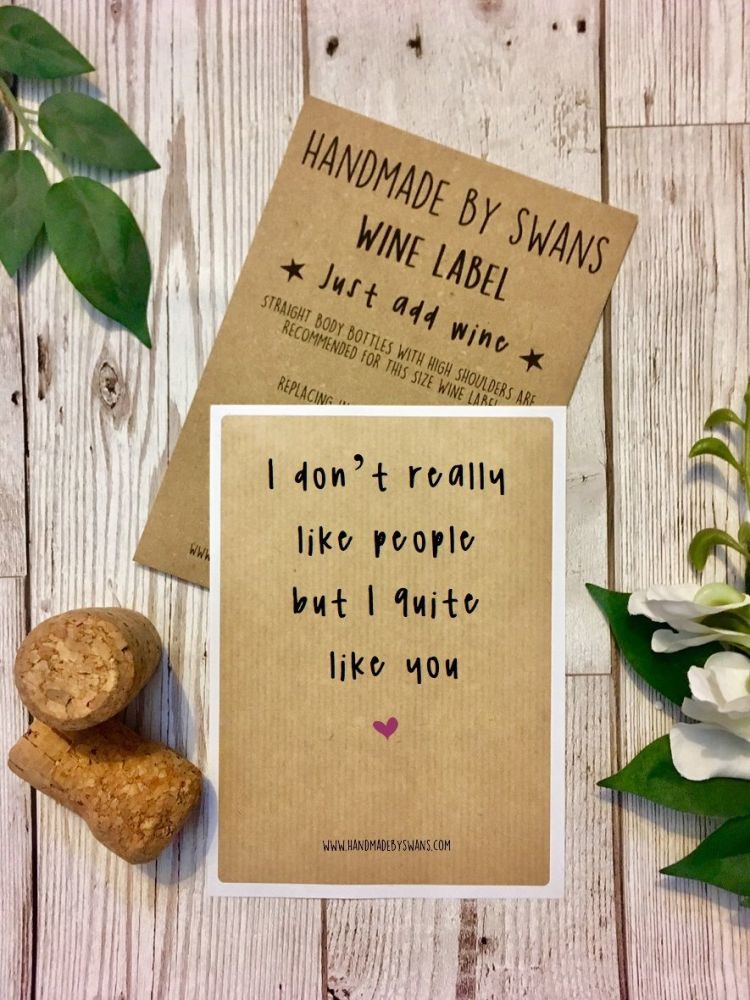 HANDMADE BY SWANS
WINE LABEL
★ Just add wine ★
STRAIGHT BODY BOTTLES WITH HIGH SHOULDERS ARE
RECOMMENDED FOR THIS SIZE WINE LABEL
REPLACING
I don't really
like people
but I quite
like you
www.HANDMADEBYSWANS.COM